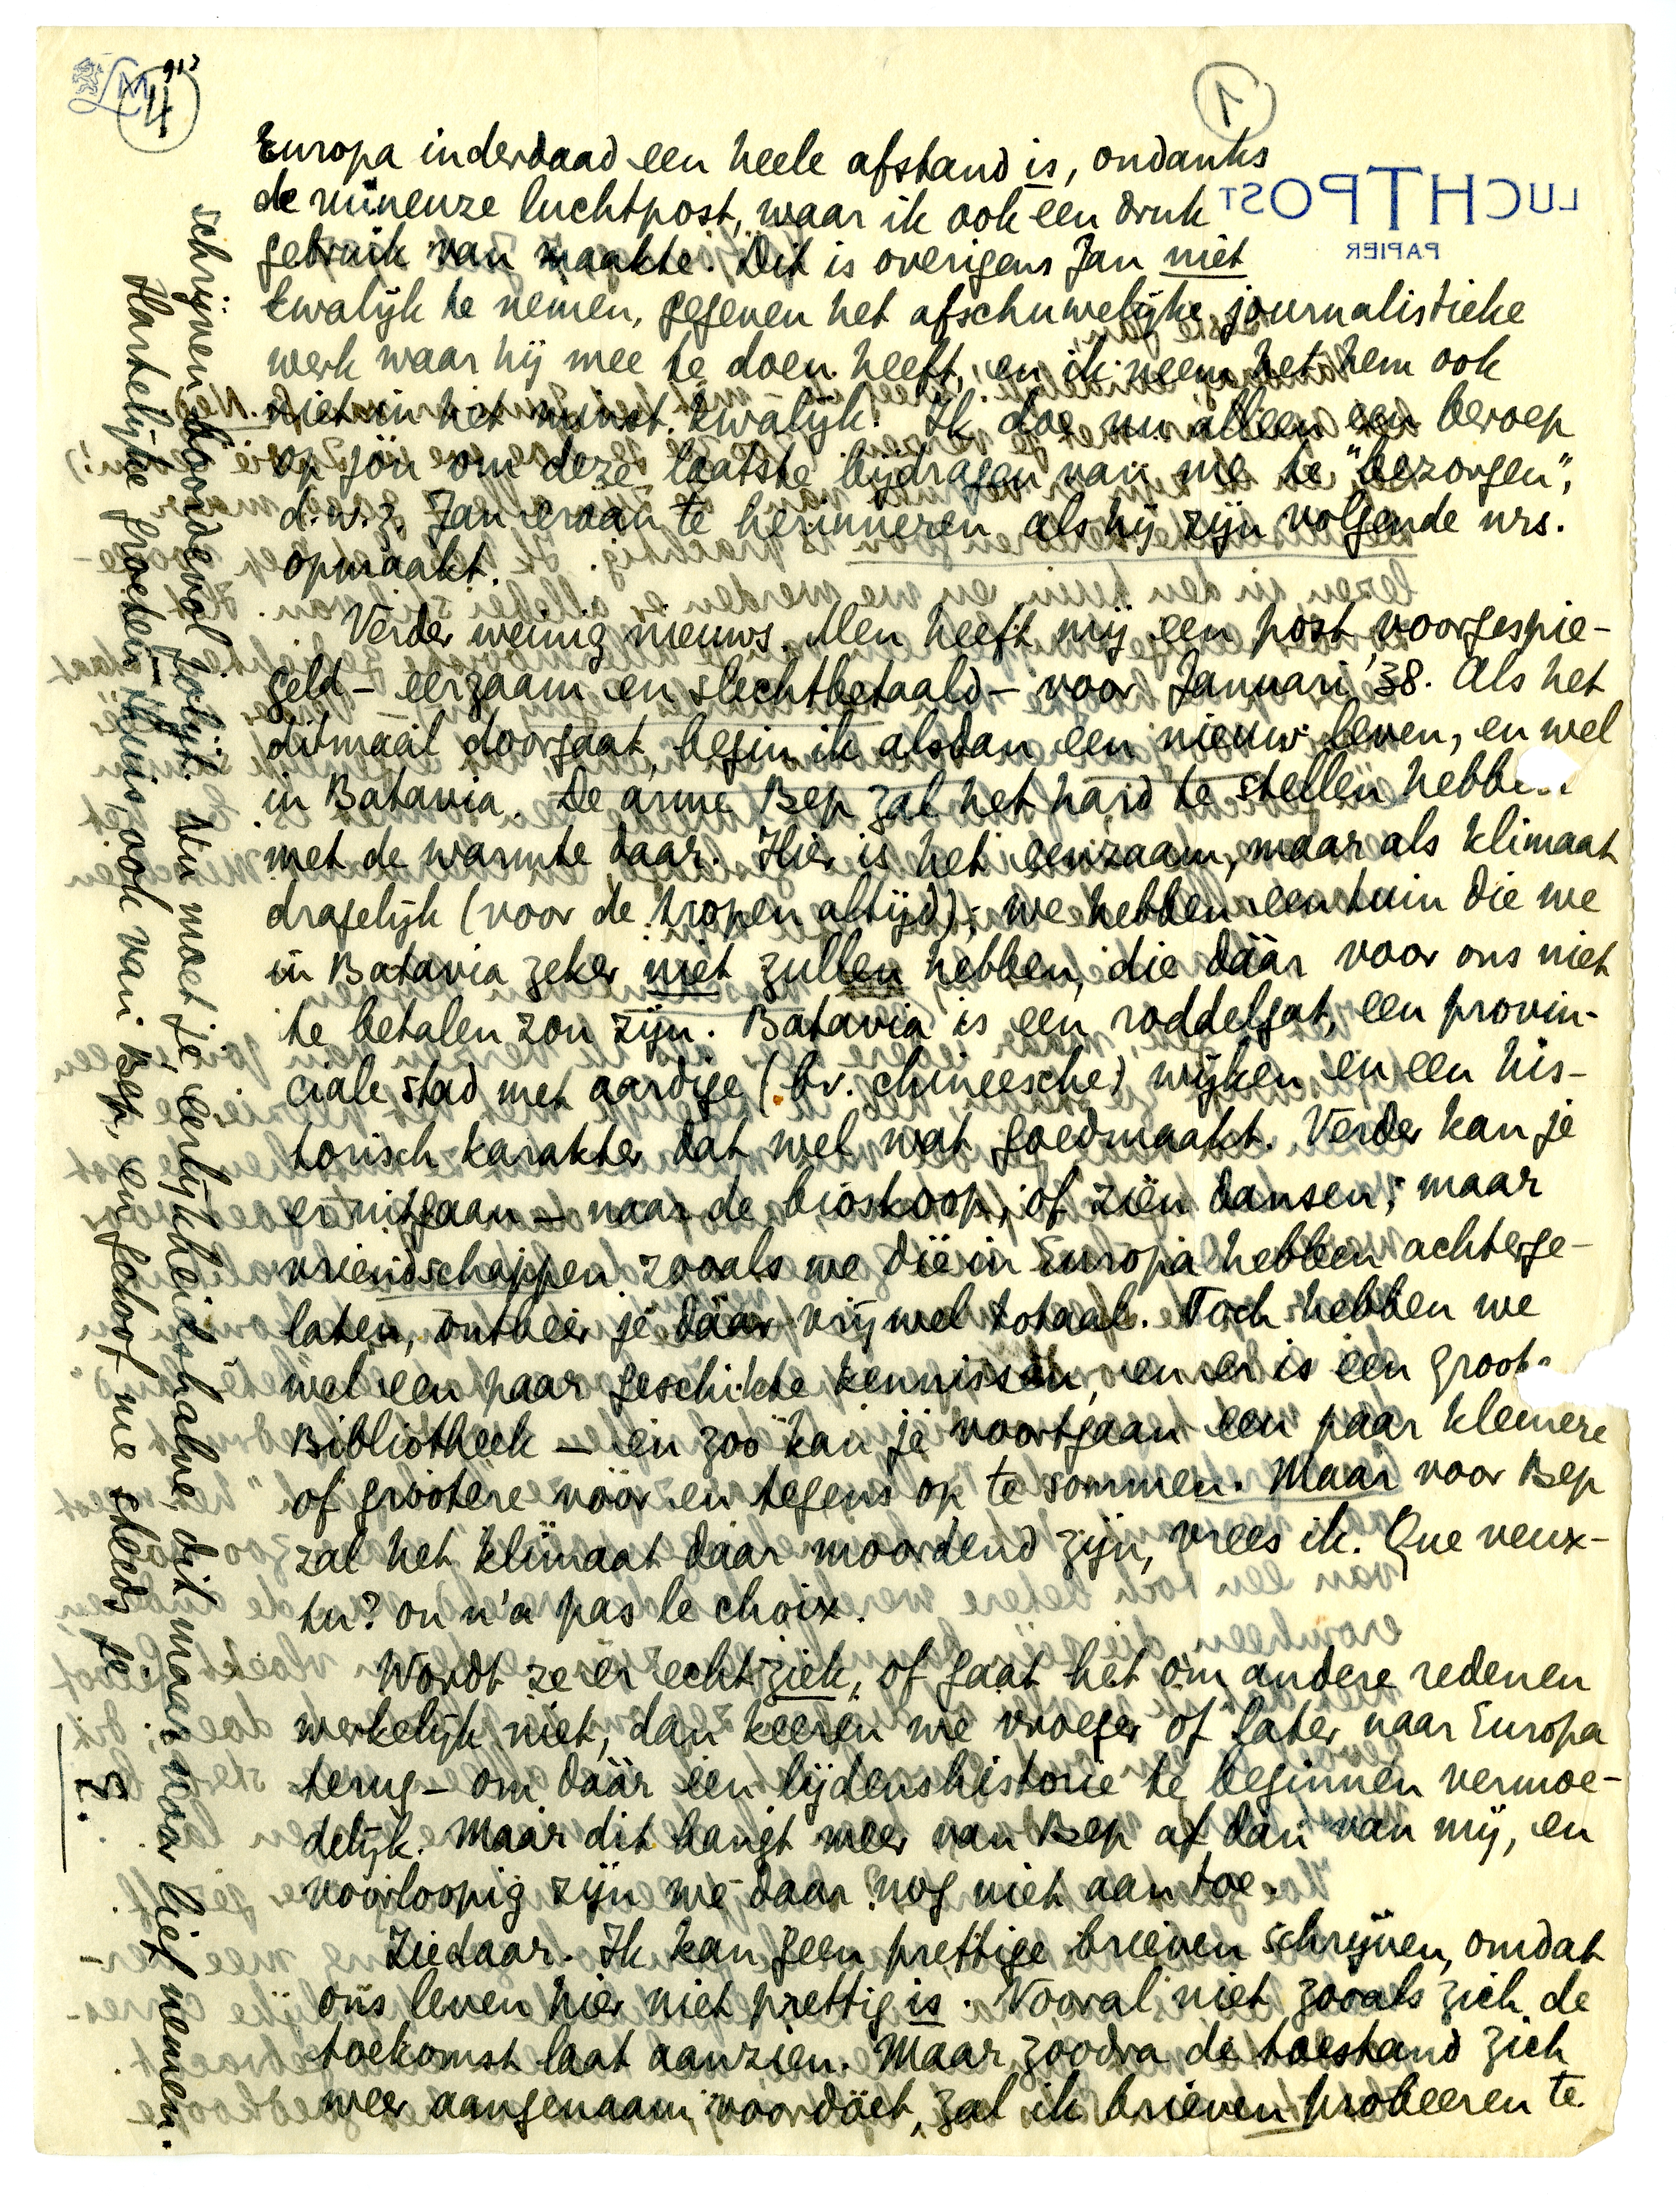 4
1
LUCHTPOST
PAPIER
Europa inderdaad een heele afstand is, ondanks
de ruïneuze luchtpost, waar ik ook een druk
gebruik van maakte. Dit is overigens Jan niet
kwalijk te nemen, gegeven het afschuwelijke journalistieke
werk waar hij mee te doen heeft, en ik neem het hem ook
niet in het minst kwalijk. Ik doe nu alleen een beroep
op jou om deze laatste bijdragen van me te "bezorgen",
d.w.z. Jan eraan te herinneren als hij zijn volgende nrs.
opmaakt.
Verder weinig nieuws. Men heeft mij een post voorgespie-
geld – eerzaam en slechtbetaald – voor Januari '38. Als het
ditmaal doorgaat, begin ik alsdan een nieuw leven, en wel
in Batavia. De arme Bep zal het hard te stellen hebben
met de warmte daar. Hier is het eenzaam, maar als klimaat
dragelijk (voor de tropen altijd); we hebben een tuin die we
in Batavia zeker niet zullen hebben, die dáár voor ons niet
te betalen zou zijn. Batavia is een roddelgat, een provin-
ciale stad met aardige (bv. chineesche) wijken en een his-
torisch karakter dat wel wat goedmaakt. Verder kan je
er uitgaan – naar de bioskoop, of zien dansen; maar
vriendschappen zooals we die in Europa hebben achterge-
laten, ontbeer je dáár vrijwel totaal. Toch hebben we
wel een paar geschikte kennissen, en er is een groote
Bibliotheek – en zoo kan je voortgaan een paar kleinere
of grootere vóór en tegens op te sommen. Maar voor Bep
zal het klimaat daar moordend zijn, vrees ik. Que veux-
tu? on n'a pas le choix.
Wordt ze er echt ziek, of gaat het om andere redenen
werkelijk niet, dan keeren we vroeger of later naar Europa
terug – om dáár een lijdenshistorie te beginnen vermoe-
delijk. Maar dit hangt meer van Bep af dan van mij, en
voorloopig zijn we daar nog niet aan toe.
Ziedaar. Ik kan geen prettige brieven schrijven, omdat
ons leven hier niet prettig is. Vooral niet zooals zich de
toekomst laat aanzien. Maar zoodra de toestand zich
weer aangenaam voordoet, zal ik brieven probeeren te
schrijven boordevol jolijt. Nu moet je, eerlijkheidshalve, dit maar voor lief nemen.
Hartelijke groeten thuis, ook van Bep, en geloof me steeds je
E.